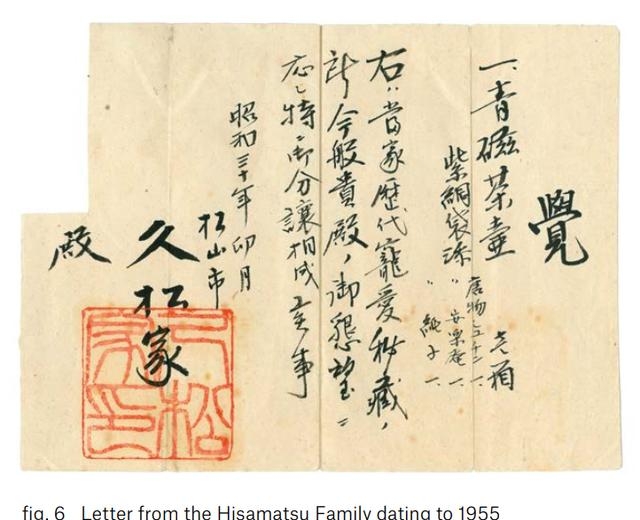 覺
一、青磁茶壷
紫網袋添
〃 安楽庵 一、
純子 一、
右ハ當家歴代寵愛秘藏ノ
所今般貴殿ノ御懇望ニ
応シ特ニ御分譲相成事
昭和三十年卯月
松山市
久松家
殿
久松
家之印
fig. 6 Letter from the Hisamatsu Family dating to 1955